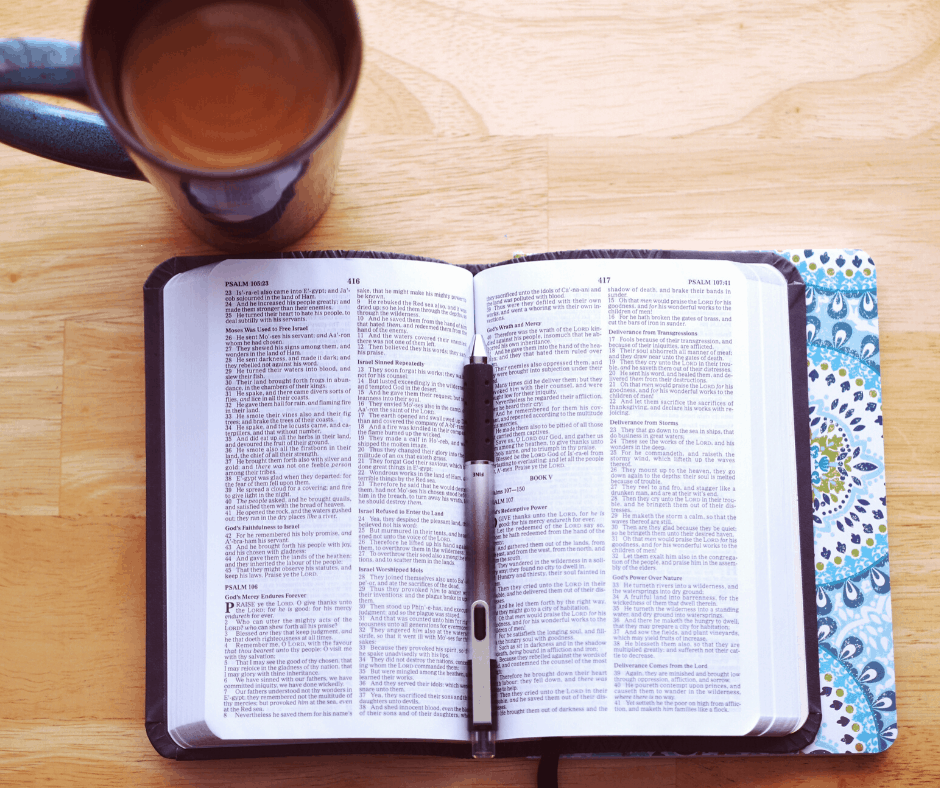 PSALM 105:23
416
23 Is'-ra-el also came into E'-gypt; and Ja'-
cob sojourned in the land of Ham.
24 And he increased his people greatly; and
made them stronger than their enemies.
25 He turned their heart to hate his people, to
deal subtilly with his servants.
Moses Was Used to Free Israel
26 He sent Mo'-ses his servant; and Aa'-ron
whom he had chosen.
27 They shewed his signs among them, and
wonders in the land of Ham.
28 He sent darkness, and made it dark; and
they rebelled not against his word.
29 He turned their waters into blood, and
slew their fish.
30 Their land brought forth frogs in abun-
dance, in the chambers of their kings.
31 He spake, and there came divers sorts of
flies, and lice in all their coasts.
32 He gave them hail for rain, and flaming fire
in their land.
33 He smote their vines also and their fig
trees; and brake the trees of their coasts.
34 He spake, and the locusts came, and ca-
terpillers, and that without number,
35 And did eat up all the herbs in their land,
and devoured the fruit of their ground.
36 He smote also all the firstborn in their
land, the chief of all their strength.
37 He brought them forth also with silver and
gold: and there was not one feeble person
among their tribes.
38 E'-gypt was glad when they departed: for
the fear of them fell upon them.
39 He spread a cloud for a covering; and fire
to give light in the night.
40 The people asked, and he brought quails,
and satisfied them with the bread of heaven.
41 He opened the rock, and the waters gushed
out; they ran in the dry places like a river.
God's Faithfulness to Israel
42 For he remembered his holy promise, and
A'-bra-ham his servant.
43 And he brought forth his people with joy,
and his chosen with gladness:
44 And gave them the lands of the heathen:
and they inherited the labour of the people;
45 That they might observe his statutes, and
keep his laws. Praise ye the LORD.
PSALM 106
God's Mercy Endures Forever
PRAISE ye the LORD. O give thanks unto
the LORD; for he is good: for his mercy
endureth for ever.
2 Who can utter the mighty acts of the
LORD? who can shew forth all his praise?
3 Blessed are they that keep judgment, and
he that doeth righteousness at all times.
4 Remember me, O LORD, with the favour
that thou bearest unto thy people: O visit me
with thy salvation;
5 That I may see the good of thy chosen, that
I may rejoice in the gladness of thy nation, that
I may glory with thine inheritance.
6 We have sinned with our fathers, we have
committed iniquity, we have done wickedly.
7 Our fathers understood not thy wonders in
E'-gypt; they remembered not the multitude of
thy mercies; but provoked him at the sea, even
at the Red sea.
8 Nevertheless he saved them for his name's
sake, that he might make his mighty power
be known.
9 He rebuked the Red sea also, and it was
dried up: so he led them through the depths, as
through the wilderness.
10 And he saved them from the hand of him
that hated them, and redeemed them from the
hand of the enemy.
11 And the waters covered their enemies:
there was not one of them left.
12 Then believed they his words; they sang
his praise.
Israel Sinned Repeatedly
13 They soon forgat his works; they
not for his counsel:
14 But lusted exceedingly in the wilderness,
and tempted God in the desert.
15 And he gave them their request; but
leanness into their soul.
16 They envied Mo'-ses also in the camp,
Aa'-ron the saint of the LORD.
17 The earth opened and swallowed up
and covered the company of
18 And a fire was kindled in their company;
the flame burned up the wicked.
19 They made a calf in Ho'-reb, and
shipped the molten image.
20 Thus they changed their glory into
militude of an ox that eateth grass.
21 They forgat God their saviour, which
done great things in E'-gypt;
22 Wondrous works in the land of Ham,
terrible things by the Red sea.
23 Therefore he said that he would
them, had not Mo'-ses his chosen stood
him in the breach, to turn away his wrath,
he should destroy them.
Israel Refused to Enter the Land
24 Yea, they despised the pleasant land,
believed not his word:
25 But murmured in their tents, and
ened not unto the voice of the LORD.
26 Therefore he lifted up his hand against
them, to overthrow them in the wilderness:
27 To overthrow their seed also among the
tions, and to scatter them in the lands.
Israel Worshipped Idols
28 They joined themselves also unto
pe'-or, and ate the sacrifices of the dead.
29 Thus they provoked him to anger
their inventions: and the plague brake in
them.
30 Then stood up Phin'-e-has, and
judgment: and so the plague was stayed.
31 And that was counted unto him for
eousness unto all generations for evermore.
32 They angered him also at the waters
strife, so that it went ill with Mo'-ses for
sakes:
33 Because they provoked his spirit, so
he spake unadvisedly with his lips.
34 They did not destroy the nations,
ing whom the LORD commanded them:
35 But were mingled among the heathen,
learned their works.
36 And they served their idols: which
snare unto them.
37 Yea, they sacrificed their sons and
daughters unto devils,
38 And shed innocent blood, even the
of their sons and of their daughters,
PINE
417
PSALM 107:41
they sacrificed unto the idols of Ca'-na-an: and
the land was polluted with blood.
39 Thus were they defiled with their own
works, and went a whoring with their own in-
ventions.
God's Wrath and Mercy
40 Therefore was the wrath of the LORD kin-
dled against his people, insomuch that he ab-
horred his own inheritance.
41 And he gave them into the hand of the hea-
then; and they that hated them ruled over
them.
Their enemies also oppressed them, and
were brought into subjection under their
hand.
Many times did he deliver them; but they
provoked him with their counsel, and were
brought low for their iniquity.
Nevertheless he regarded their affliction,
when he heard their cry:
And he remembered for them his cov-
enant, and repented according to the multitude
of his mercies.
He made them also to be pitied of all those
that carried them captives.
Save us, O LORD our God, and gather us
from among the heathen, to give thanks unto
thy holy name, and to triumph in thy praise.
Blessed be the LORD God of Is'-ra-el from
everlasting to everlasting: and let all the people
say, Amen. Praise ye the LORD.
BOOK V
Psalms 107—150
PSALM 107
God's Redemptive Power
GIVE thanks unto the LORD, for he is
good: for his mercy endureth for ever.
Let the redeemed of the LORD say so,
whom he hath redeemed from the hand of the
enemy;
And gathered them out of the lands, from
the east, and from the west, from the north, and
from the south.
They wandered in the wilderness in a soli-
tary way; they found no city to dwell in.
Hungry and thirsty, their soul fainted in
them.
Then they cried unto the LORD in their
trouble, and he delivered them out of their dis-
tresses.
And he led them forth by the right way,
that they might go to a city of habitation.
Oh that men would praise the LORD for his
goodness, and for his wonderful works to the
children of men!
For he satisfieth the longing soul, and fill-
eth the hungry soul with goodness.
Such as sit in darkness and in the shadow
of death, being bound in affliction and iron;
Because they rebelled against the words of
God, and contemned the counsel of the most
High:
Therefore he brought down their heart
with labour; they fell down, and there was
none to help.
Then they cried unto the LORD in their
trouble, and he saved them out of their dis-
tresses.
He brought them out of darkness and the
shadow of death, and brake their bands in
sunder.
15 Oh that men would praise the LORD for his
goodness, and for his wonderful works to the
children of men!
16 For he hath broken the gates of brass, and
cut the bars of iron in sunder.
Deliverance from Transgressions
17 Fools because of their transgression, and
because of their iniquities, are afflicted.
18 Their soul abhorreth all manner of meat;
and they draw near unto the gates of death.
19 Then they cry unto the LORD in their trou-
ble, and he saveth them out of their distresses.
20 He sent his word, and healed them, and de-
livered them from their destructions.
21 Oh that men would praise the LORD for his
goodness, and for his wonderful works to the
children of men!
22 And let them sacrifice the sacrifices of
thanksgiving, and declare his works with re-
joicing.
Deliverance from Storms
23 They that go down to the sea in ships, that
do business in great waters;
24 These see the works of the LORD, and his
wonders in the deep.
25 For he commandeth, and raiseth the
stormy wind, which lifteth up the waves
thereof.
26 They mount up to the heaven, they go
down again to the depths: their soul is melted
because of trouble.
27 They reel to and fro, and stagger like a
drunken man, and are at their wit's end.
28 Then they cry unto the LORD in their trou-
ble, and he bringeth them out of their dis-
tresses.
29 He maketh the storm a calm, so that the
waves thereof are still.
30 Then are they glad because they be quiet;
so he bringeth them unto their desired haven.
31 Oh that men would praise the LORD for his
goodness, and for his wonderful works to the
children of men!
32 Let them exalt him also in the congrega-
tion of the people, and praise him in the assem-
bly of the elders.
God's Power Over Nature
33 He turneth rivers into a wilderness, and
the watersprings into dry ground;
34 A fruitful land into barrenness, for the
wickedness of them that dwell therein.
35 He turneth the wilderness into a standing
water, and dry ground into watersprings.
36 And there he maketh the hungry to dwell,
that they may prepare a city for habitation;
37 And sow the fields, and plant vineyards,
which may yield fruits of increase.
38 He blesseth them also, so that they are
multiplied greatly; and suffereth not their cat-
tle to decrease.
Deliverance Comes from the Lord
39 Again, they are minished and brought low
through oppression, affliction, and sorrow.
40 He poureth contempt upon princes, and
causeth them to wander in the wilderness,
where there is no way.
41 Yet setteth he the poor on high from afflic-
tion, and maketh him families like a flock.